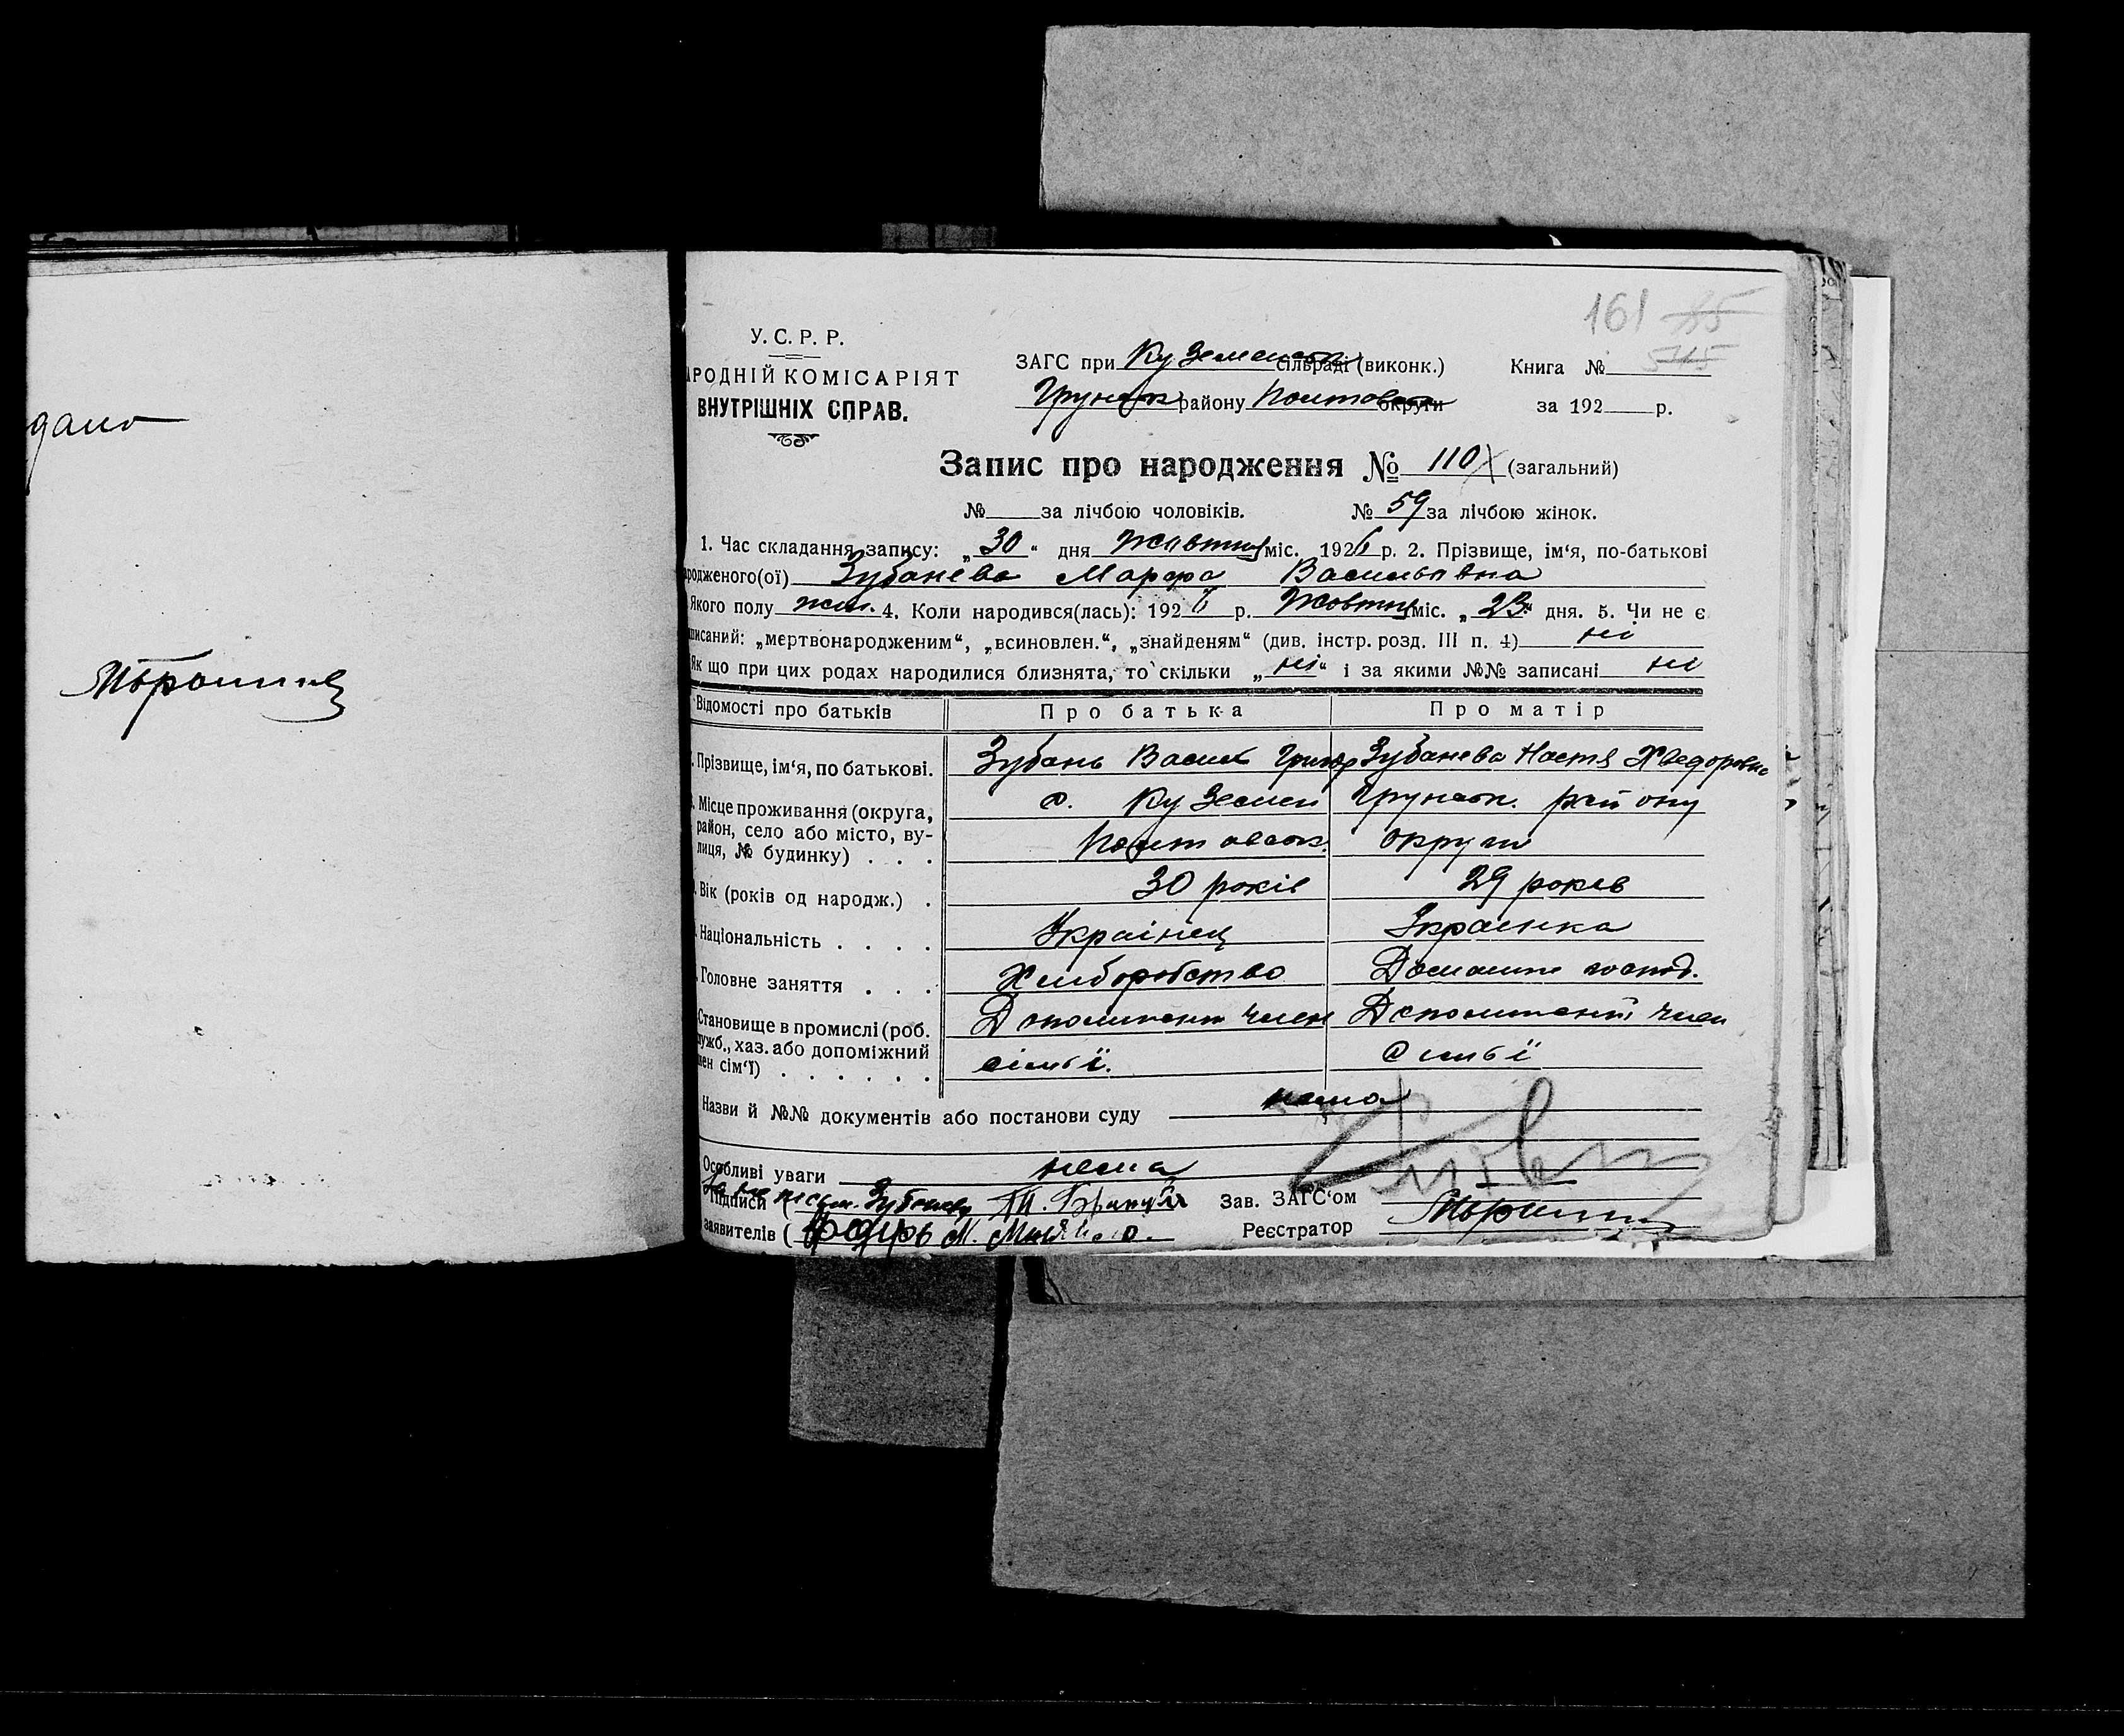 дано
161 85
515
У. С. Р. Р.
АРОДНІЙ КОМІСАРІЯТ
ВНУТРІШНІХ СПРАВ.
ЗАГС при Куземенськ сільраді (виконк.) Книга №
Грунськ району Полтавськ округи за 192 р.
Запис про народження № 110 (загальний)
№ за лічбою чоловіків. № 59 за лічбою жінок.
1. Час складання запису: „30“ дня Жовтня міс. 1926 р. 2. Прізвище, ім‘я, по-батькові
родженого(ої) Зубанева Марфа Васильевна
Якого полу жін. 4. Коли народився(лась): 1926 р. Жовтня міс. „23“ дня. 5. Чи не є
писаний: „мертвонародженим“, „всиновлен.“, „знайденям“ (див. інстр. розд. III п. 4) ні
Як що при цих родах народилися близнята, то скільки „ні“ і за якими №№ записані ні
Відомості про батьків Про батька Про матір
Прізвище, ім‘я, по батькові. Зубань Васил Григор Зубанева Настя Хведоровна
Місце проживання (округа, с. Куземен Грунськ. району
район, село або місто, ву-
лиця, № будинку) . . . Полтавськ. округи
Вік (років од народж.) . 30 років 29 роков
Національність . . . . Українец Украенка
Головне заняття . . . Хлиборобство Домашне господ.
Становище в промислі (роб. Допомигаючи член Допомигаючи член
ужб., хаз. або допоміжний
лен сім‘ї) . . . . . . сімьї. симьї
Назви й №№ документів або постанови суду нема
Особливі уваги нема
Підписи ( Зубанева Зав. ЗАГС‘ом
заявителів ( М. Реєстратор